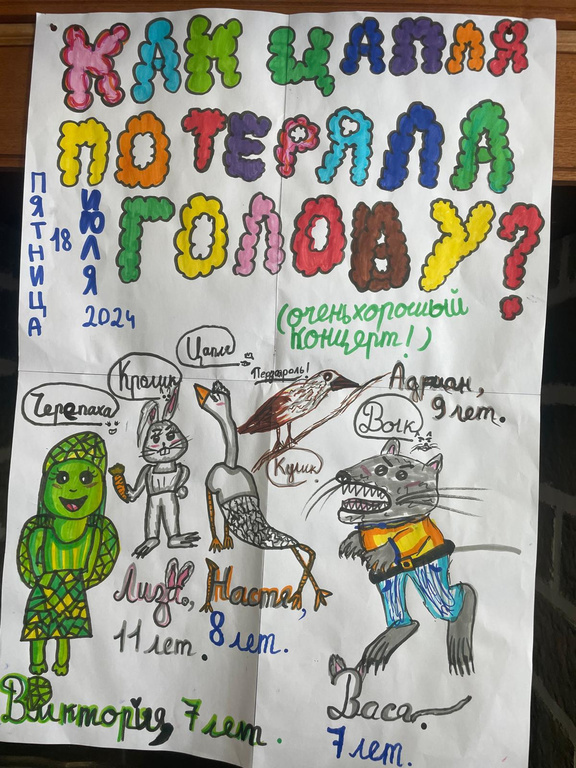 КАК ЦАПЛЯ
ПОТЕРЯЛА
ГОЛОВУ?
ПЯТНИЦА
18
ИЮЛЯ
2024
(очень хороший
концерт!)
Цапля
Кролик
Черепаха
Кулик
Адриан,
9 лет.
Волк
Лиза,
11 лет.
Настя,
8 лет.
Виктория, 7 лет.
Васа.
7 лет.